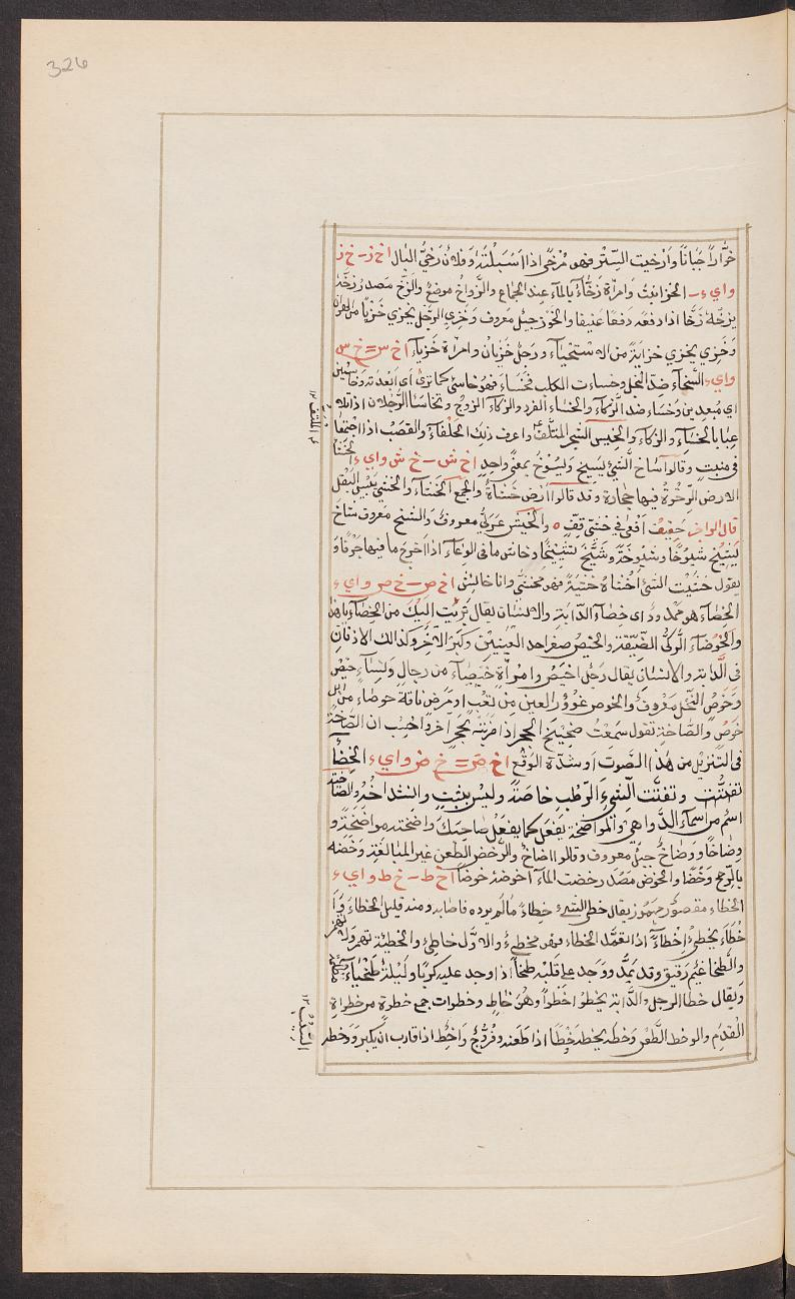 326
خوّاراً جَبَاناً وَاَرْخيت السِّتْر فهو مُرْخًى اذا اَسْبَلْتَهُ وَفلان رَخِيُّ البال اخ ز – خ ز
واي ء – الخزا نبتٌ وَامراة زَخّاءٌ بالماء عند الجماع والزَّواخُ موضعٌ والزّخ مصدر زخّهُ
يزخّهُ زَخّا اذا دفعه دفعًا عنيفا والخوز جيل معروف وخَزِي الرجُل يخزي خزيا من الهوان
وَخَزِي يخزي خزايةً من الاستحياء ورجل خَزيانُ وامراة خَزياء اخ س = خ س
واي ء السَّخآء ضدّ البخل وخسات الكلب فخَسَاءَ فهو خاسئ كما ترى أي اَبْعدته وخاسئين
اي مُبعدين وخَسَاء ضد الزّكاء والخساء الفرد والزكاء الزوج وتخاسَا الرَّجلان اذا تلا
عبا بالخسَاءِ والزكاء والخيس الشجر المتلفّ واعرف ذلك الحَلْفاء والقصَب اذا اجتمعا
في منبتٍ وقالوا ساخ الشيُّ يَسيخ ويَسُوخُ بمعنًى واحدٍ اخ ش – خ ش واي ء الخشّا
الارض الرّخوة فيها حجارة وقد قالوا ارض خشاة والجمع الخشاء والخشي يَبيس البَقْل
قال الراجز حفيف افعى في خشيّ قفٍّ ٥ والخيش عربيّ معروف والشيخ معروف شاخ
يَشيخ شيوخًا وشيوخة وشَيَّخ تشييخًا وخاش ما في الوعاء اذا اخرج ما فيها جَوفًا و
يقول خشيت الشئ أخشاه خشية فهو مخشيّ وانا خاشٍ اخ ص – خ ص واي ء
الخصاء هو ممدود اي خصاء الدّابة والانسان يقال بَرِئت اليك من الخصاء يا هذا
والخوصاء الرّكيُّ الضّيقة والخيص صغر احد العينين وكبر الاخر وكذالك الاذنان
في الدّابة والانسان يقال رَجلٌ اخيص وامرأة خيصاء من رجالٍ ونساءٍ خيصٍ
وخُوص النّخل معروف والخوص غوؤر العين من تعبٍ او مرضٍ ناقة خوصاء من ابل
خوصٍ والصّاخة تقول سمعتُ صخيخ الحجر اذا ضربته بحجر اخر واحسب ان الصّاخّة
في التنزيل من هذا الصَّوت او شدّة الوَقْع اخ ض = خ ض واي ء الخضأ
تفتّت وتفتّت الشيءِ الرّطب خاصةً وليس بثبت وانشداخهُ والصّاخة
اسم من اسماء الدَّواهي والمواضخة يَفعل كما يفعَل صاحبكَ واضخته مواضخةً و
وضاخًا ووضاخُ جبلٌ معروف وقالوا اضاخ والوخض الطّعن غير المبالغة وخضه
بالرّمح وخْضًا والخوض مَصدر خضت الماءَ اخوضهُ خوضاً اخ ط – خ ط واي ء
الخطاء مقصور مهموز يقال خطي الشيءَ خطاءً ما لم يرده فاصابه ومنه قتل الخطاء وَأَ
خْطَأَ يُخطئُ إخْطاءً اذا تعمّد الخطاء فهو مخطيءٌ والاوّل خاطئٌ والخطيئة تهمز ولا تهمز
والطَّخا غيمٌ رَقيق وقد يمدُّ ووَجد على قلبه طَخاءً اذا وجد عليه كربًا ولَيلةٌ طَخياء
ويقال خطا الرجل والدّابة يخطُوا خَطْواً وهُو خاطٍ وخطوات جمع خطوة مر خطوات
القدم والوخط الطَّعن وَخَطهُ يخطه خَطْا اذا طعنه وفرُّوجٌ وَاخِطٌ اذا قارب ان يكبر ووخطه
الملتفّ ١٢
الشيب ١٢